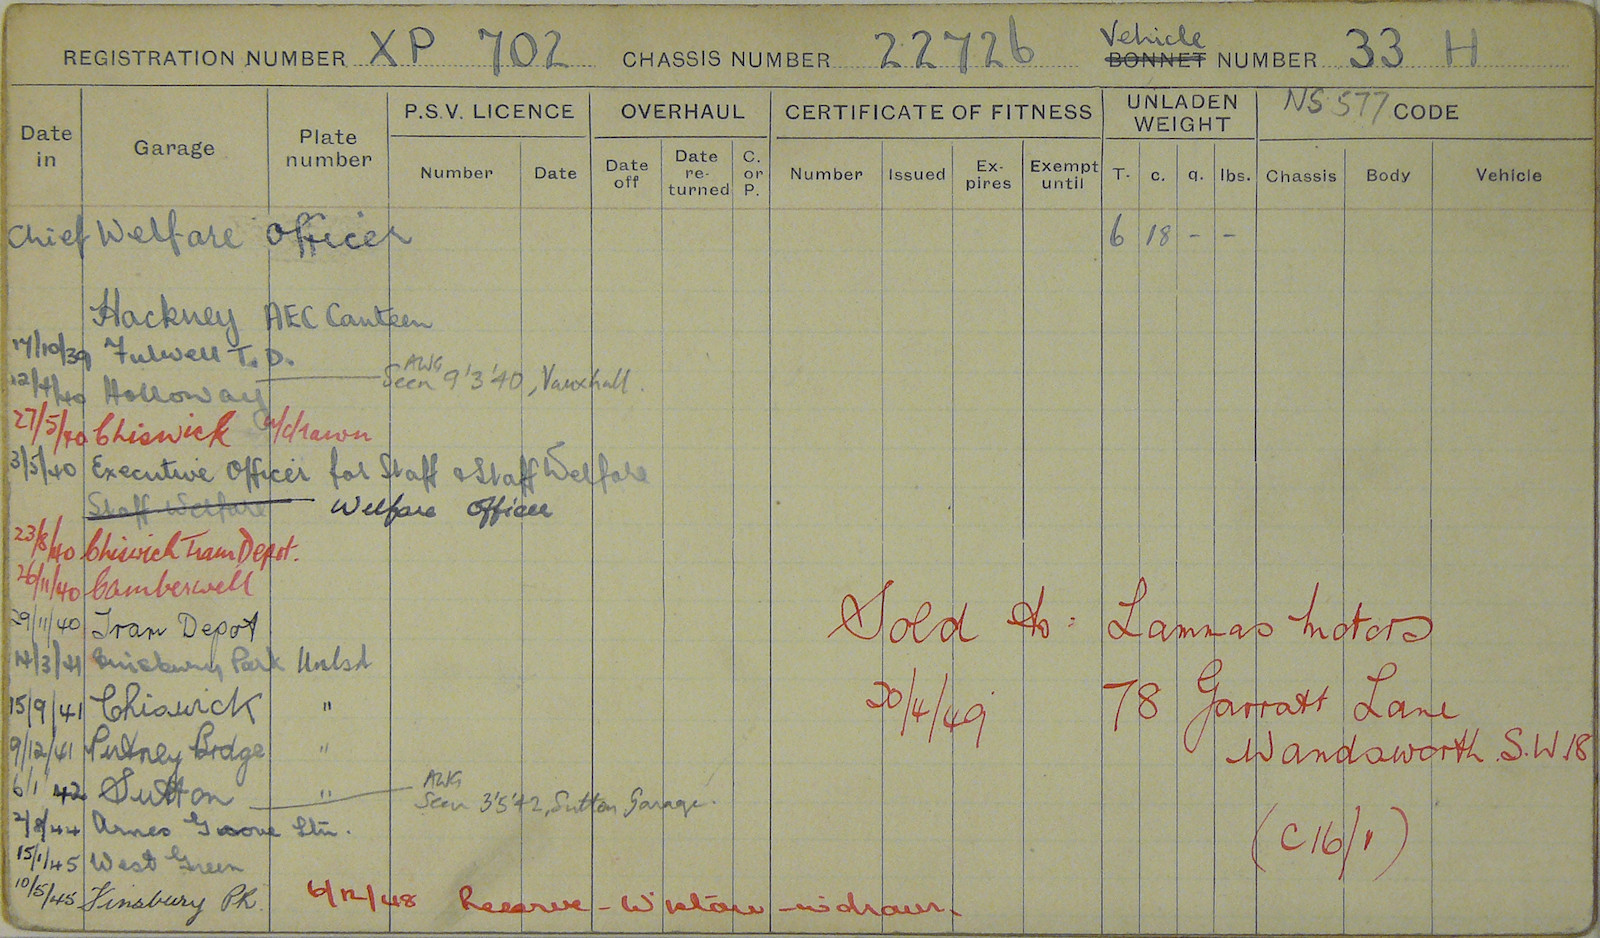 REGISTRATION NUMBER XP 702 CHASSIS NUMBER 22726 Vehicle BONNET NUMBER 33 H
Date in Garage Plate number P.S.V. LICENCE OVERHAUL CERTIFICATE OF FITNESS UNLADEN WEIGHT NS 577 CODE
Number Date Date off Date re-turned C. or P. Number Issued Ex-pires Exempt until T. c. q. lbs. Chassis Body Vehicle
Chief Welfare Officer 6 18 - -
Hackney AEC Canteen
17/10/39 Fulwell T. D.
12/4/40 Holloway AWG Seen 9'3'40, Vauxhall.
27/5/40 Chiswick w/drawn
3/5/40 Executive Officer for Staff & Staff Welfare
Staff Welfare Welfare Officer
23/8/40 Chiswick Tram Depot.
26/11/40 Camberwell
29/11/40 Tram Depot
14/3/41 Finsbury Park Unlsd
15/9/41 Chiswick "
9/12/41 Putney Bridge "
6/1/42 Sutton " AWG Seen 3'5'42, Sutton Garage.
2/8/44 Arnos Grove Stn.
15/1/45 West Green
10/5/45 Finsbury Pk. 6/12/48 Reserve - W - wdrawn.
Sold to: Lammas Motors
20/4/49 78 Garratt Lane
Wandsworth S.W.18
(C16/1)